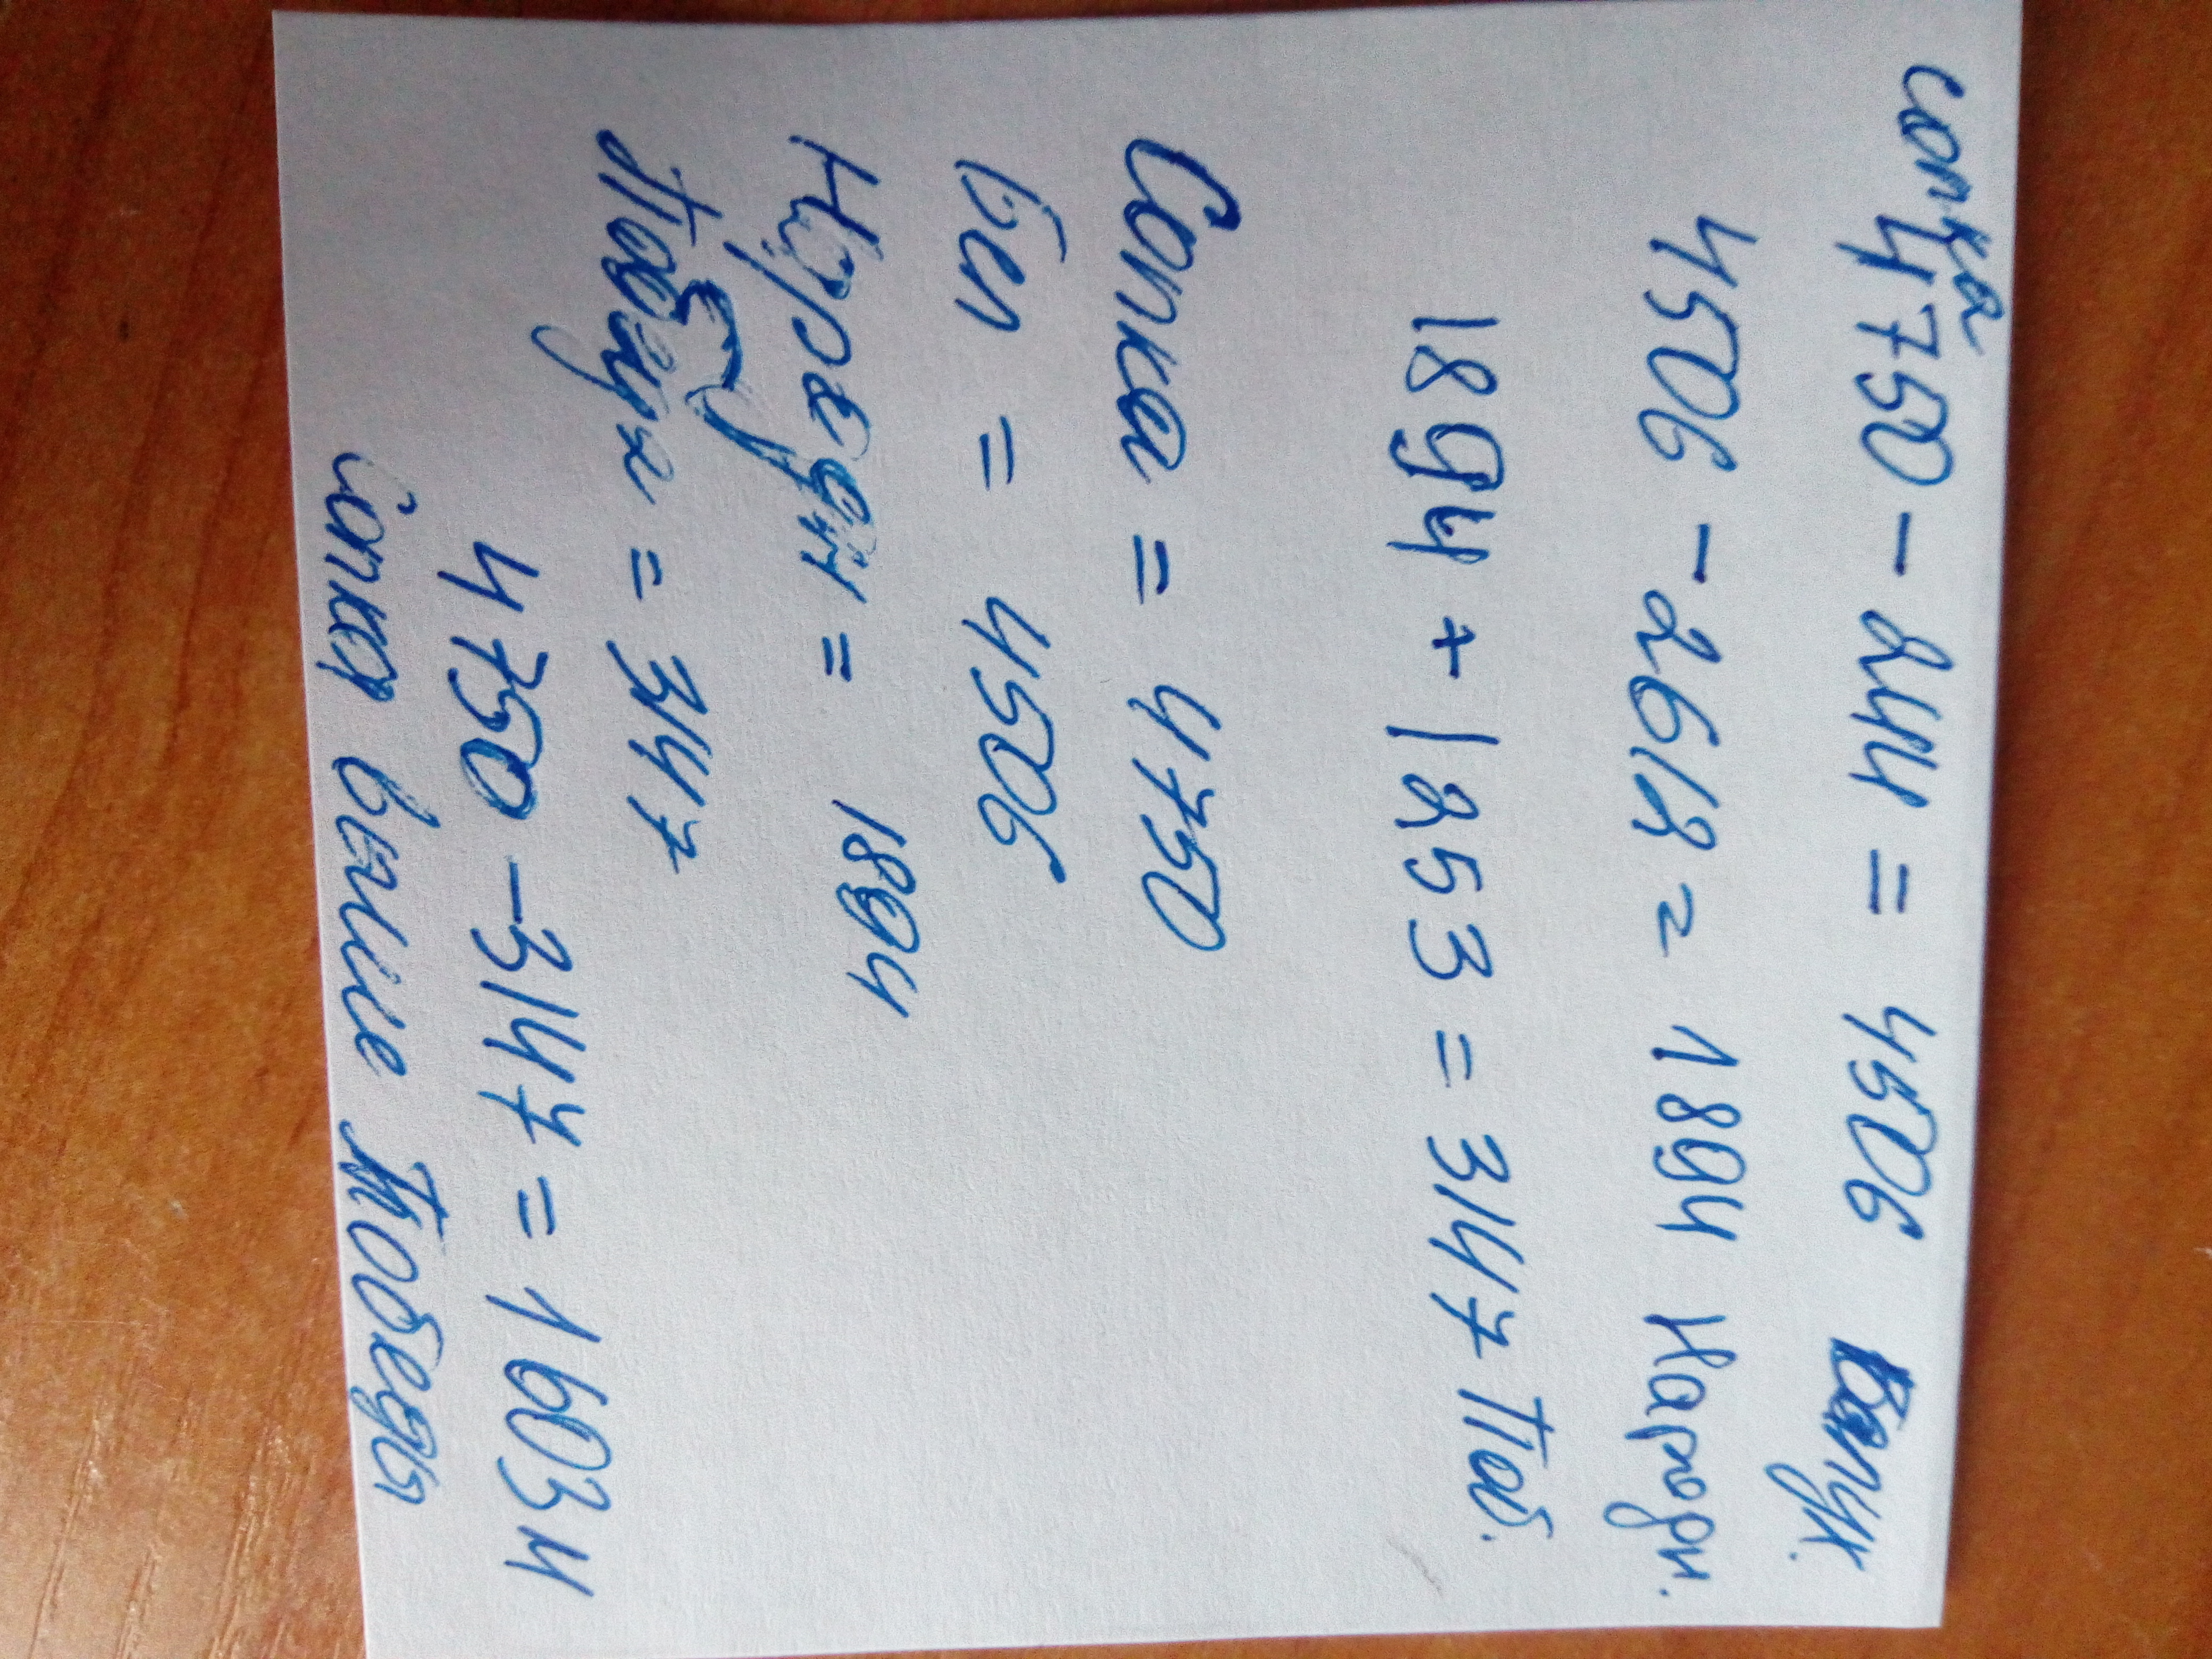 сопка
4750 - 244 = 4506
4506 - 2612 = 1894 Народн.
1894 + 1253 = 3147 Поб.
Сопка = 4750
Бел = 4506
= 1894
= 3147
4750 - 3147 = 1603 м
Сопка выше Победы